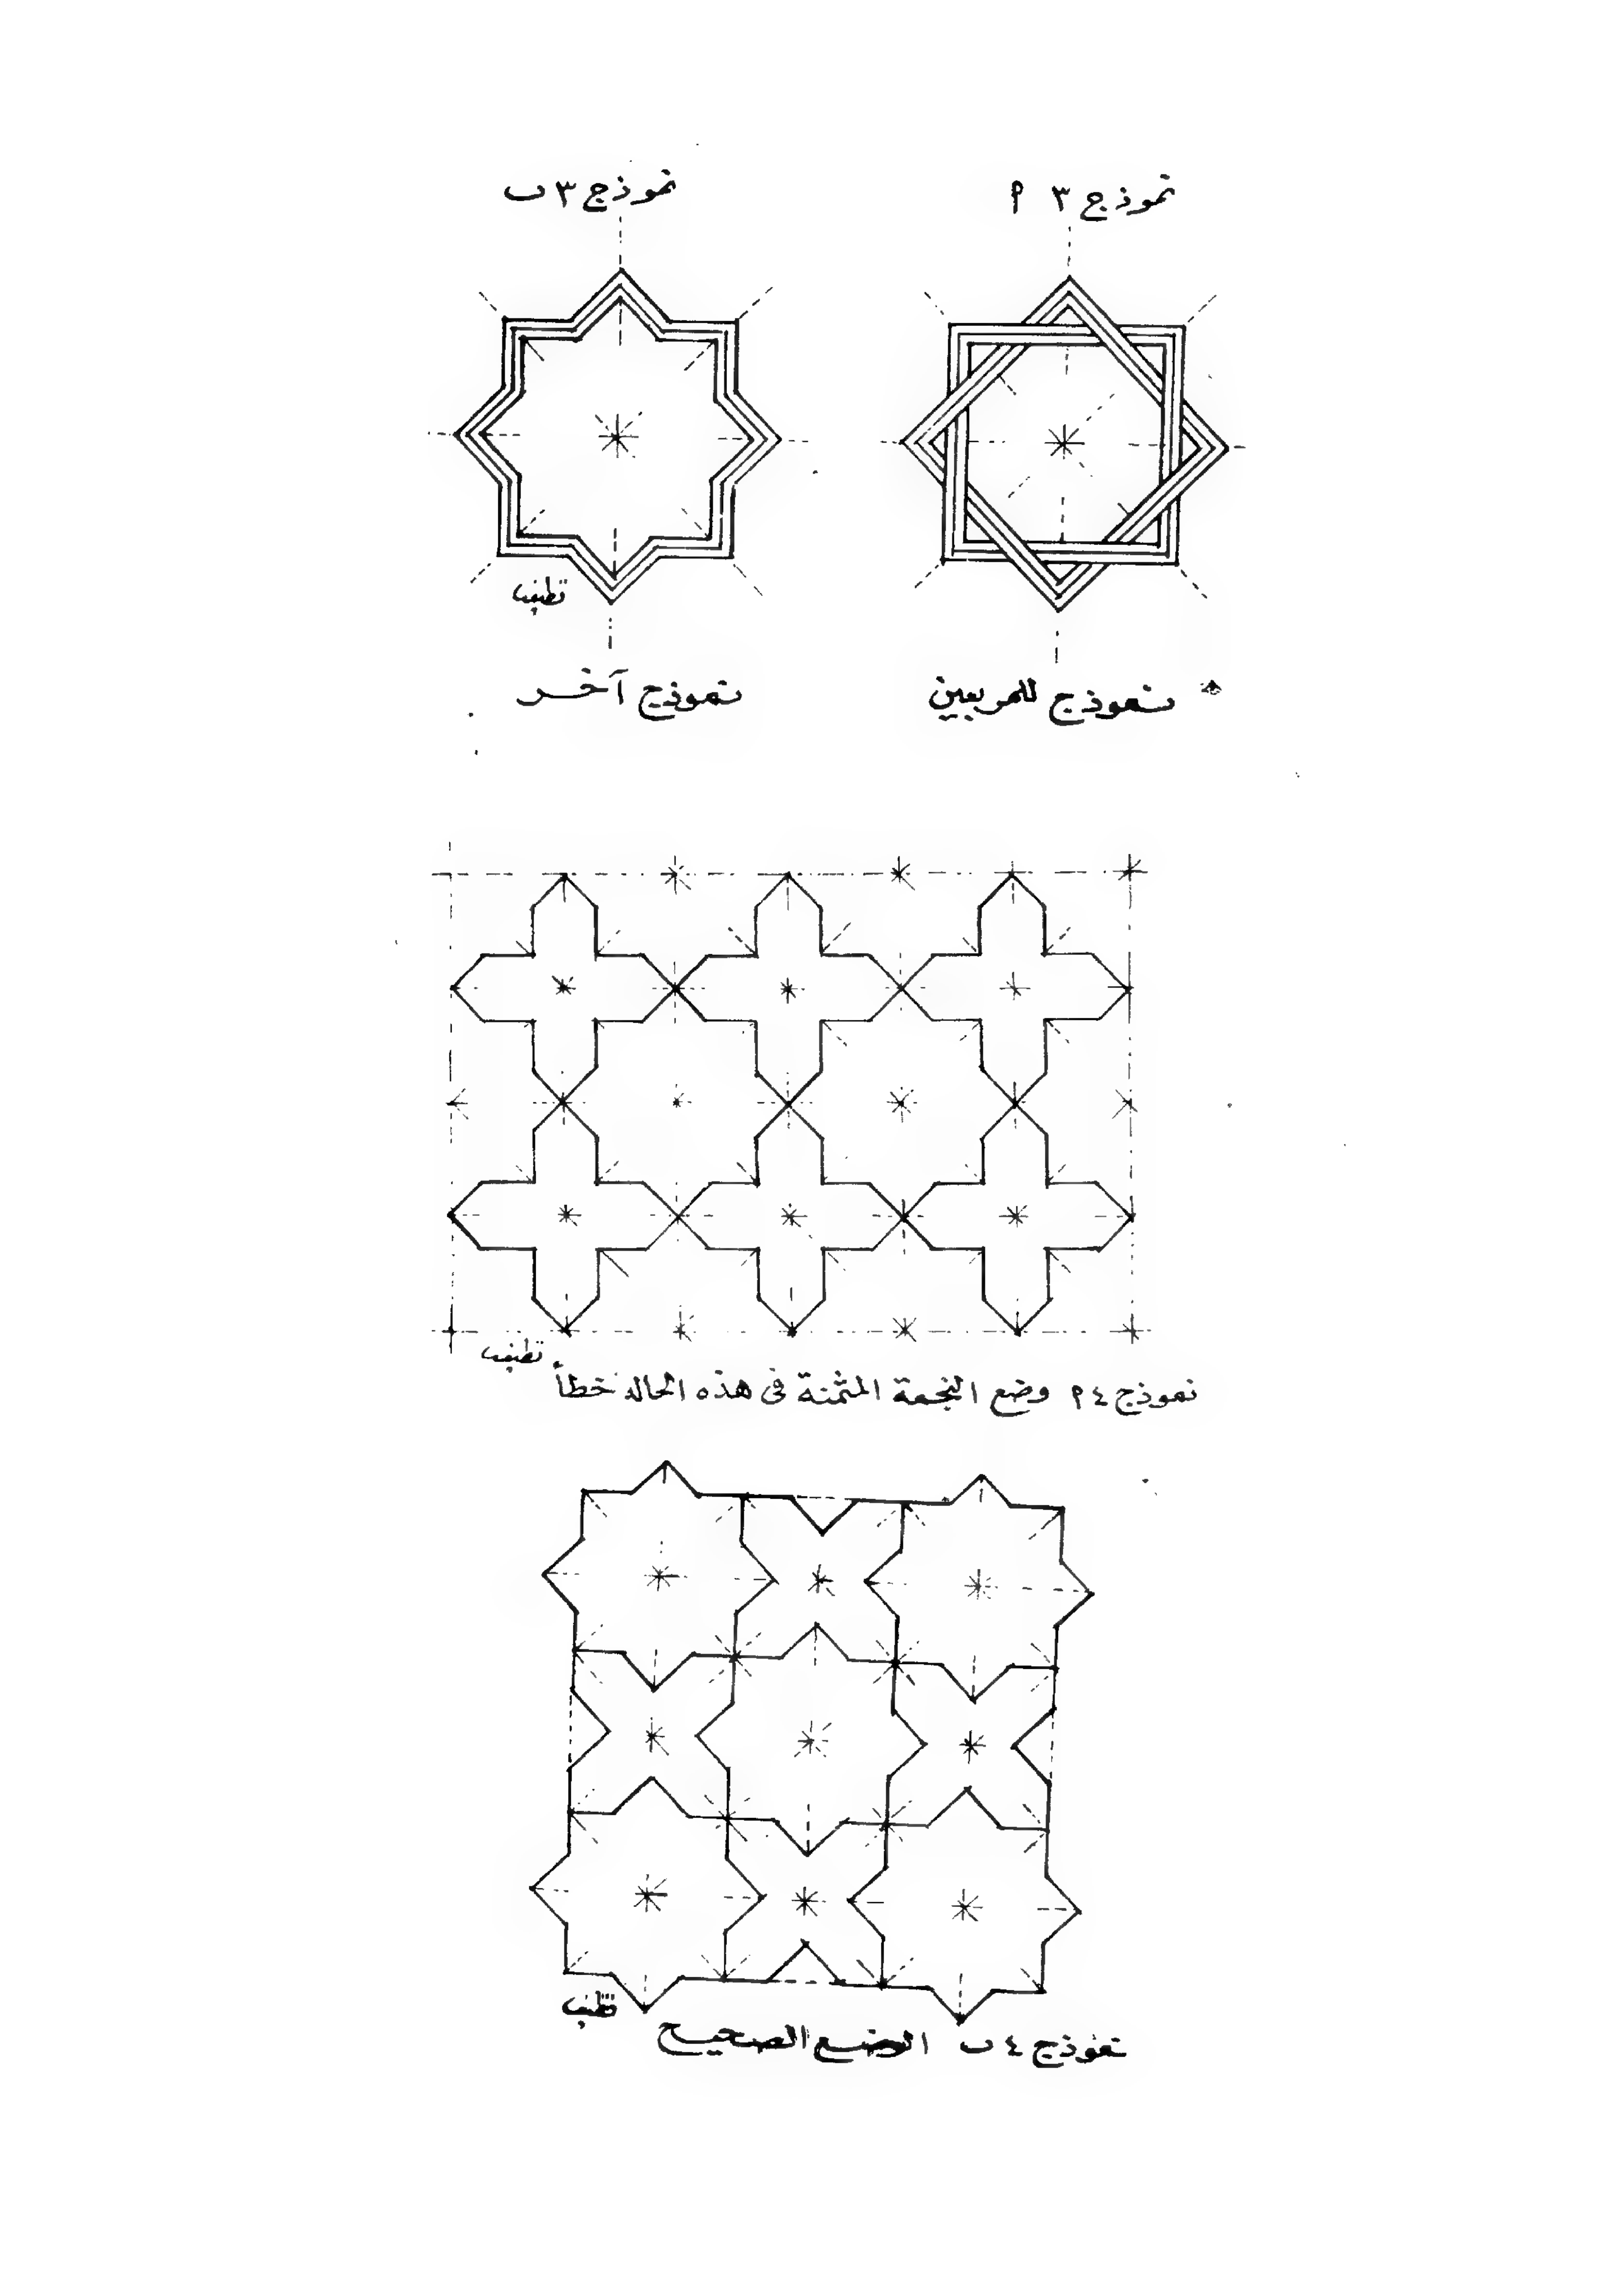 نموذج ٣ أ
نموذج ٣ ب
نموذج للمربعين
نموذج آخر
نموذج ٤ أ وضع النجمة المثمنة فى هذه الحالة خطأ
نموذج ٤ ب الوضع الصحيح